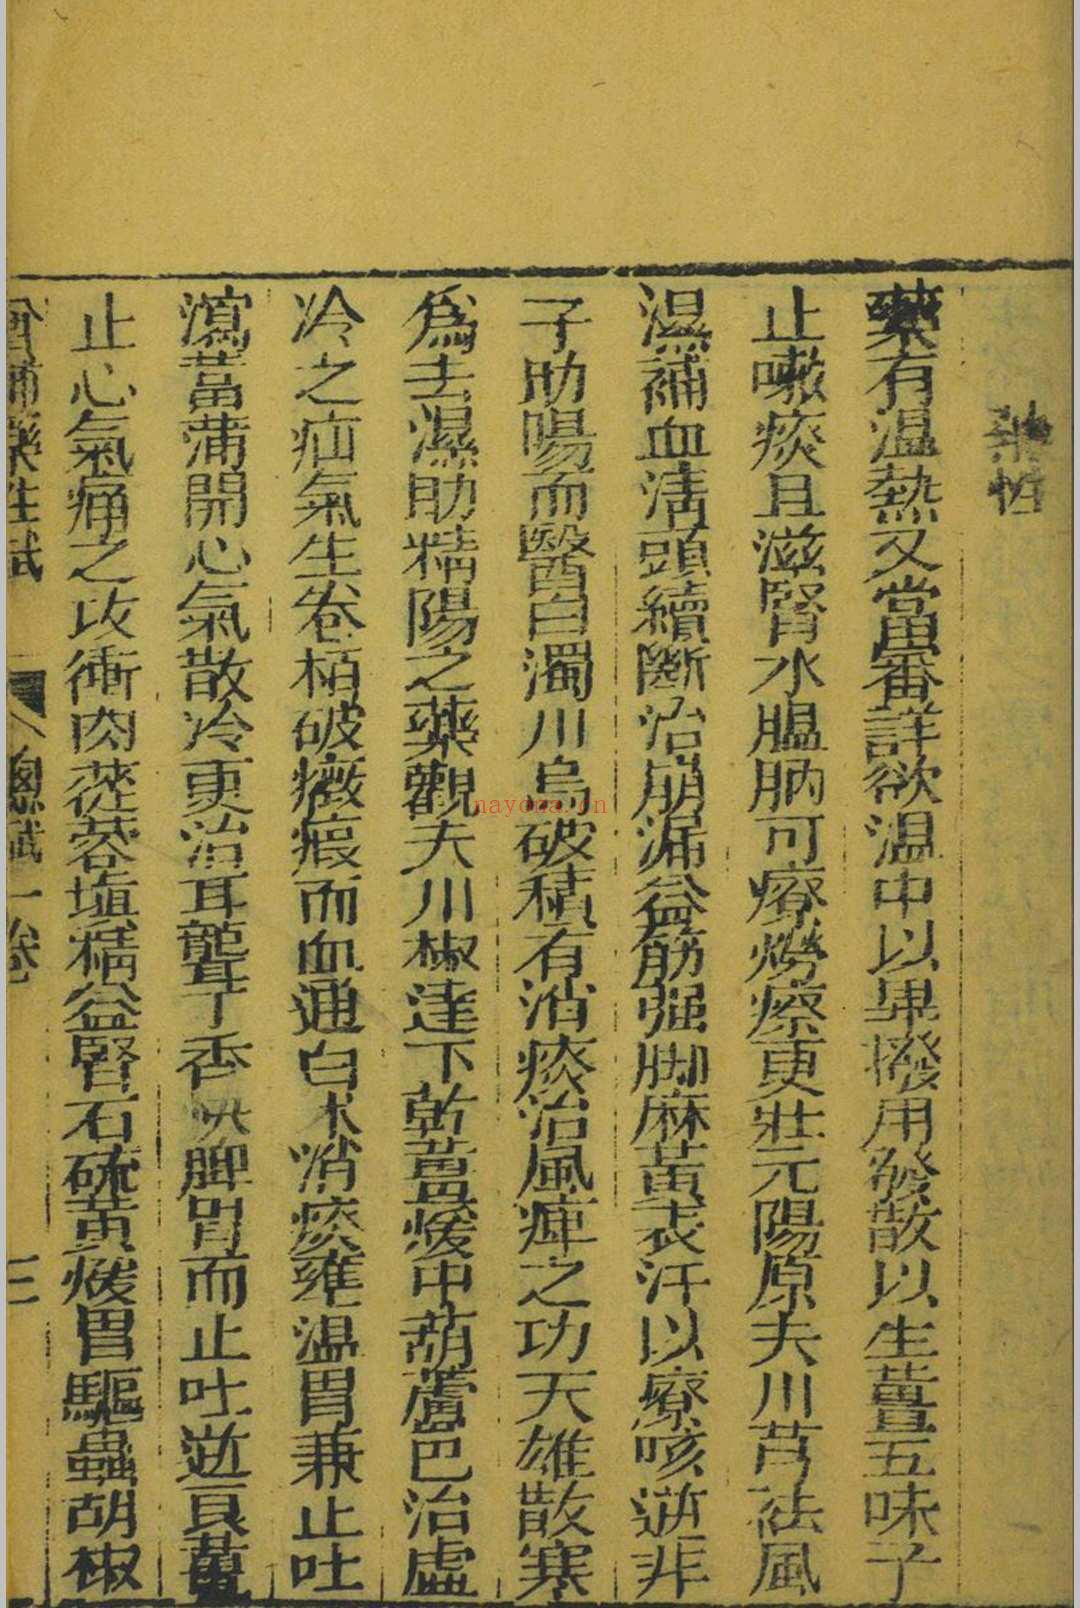 藥性
藥有温熱又當審詳欲温中以蓽撥用發散以生薑五味子
止嗽痰且滋腎水膃肭可療癆瘵更壯元陽原夫川芎祛風
濕補血淸頭續斷治崩漏益筋强脚麻黄表汗以療咳逆韭
子助陽而醫白濁川烏破積有消痰治風痺之功天雄散寒
爲去濕助精陽之藥觀夫川椒達下乾薑煖中葫蘆巴治虛
冷之疝氣生卷栢破癥瘕而血通白朮消痰壅温胃兼止吐
瀉菖蒲開心氣散冷更治耳聾丁香快脾胃而止吐逆良薑
止心氣痛之攻衝肉蓯蓉塡精益腎石硫黄煖胃驅蟲胡椒
藥性賦
總賦一卷
三
nayona.cn